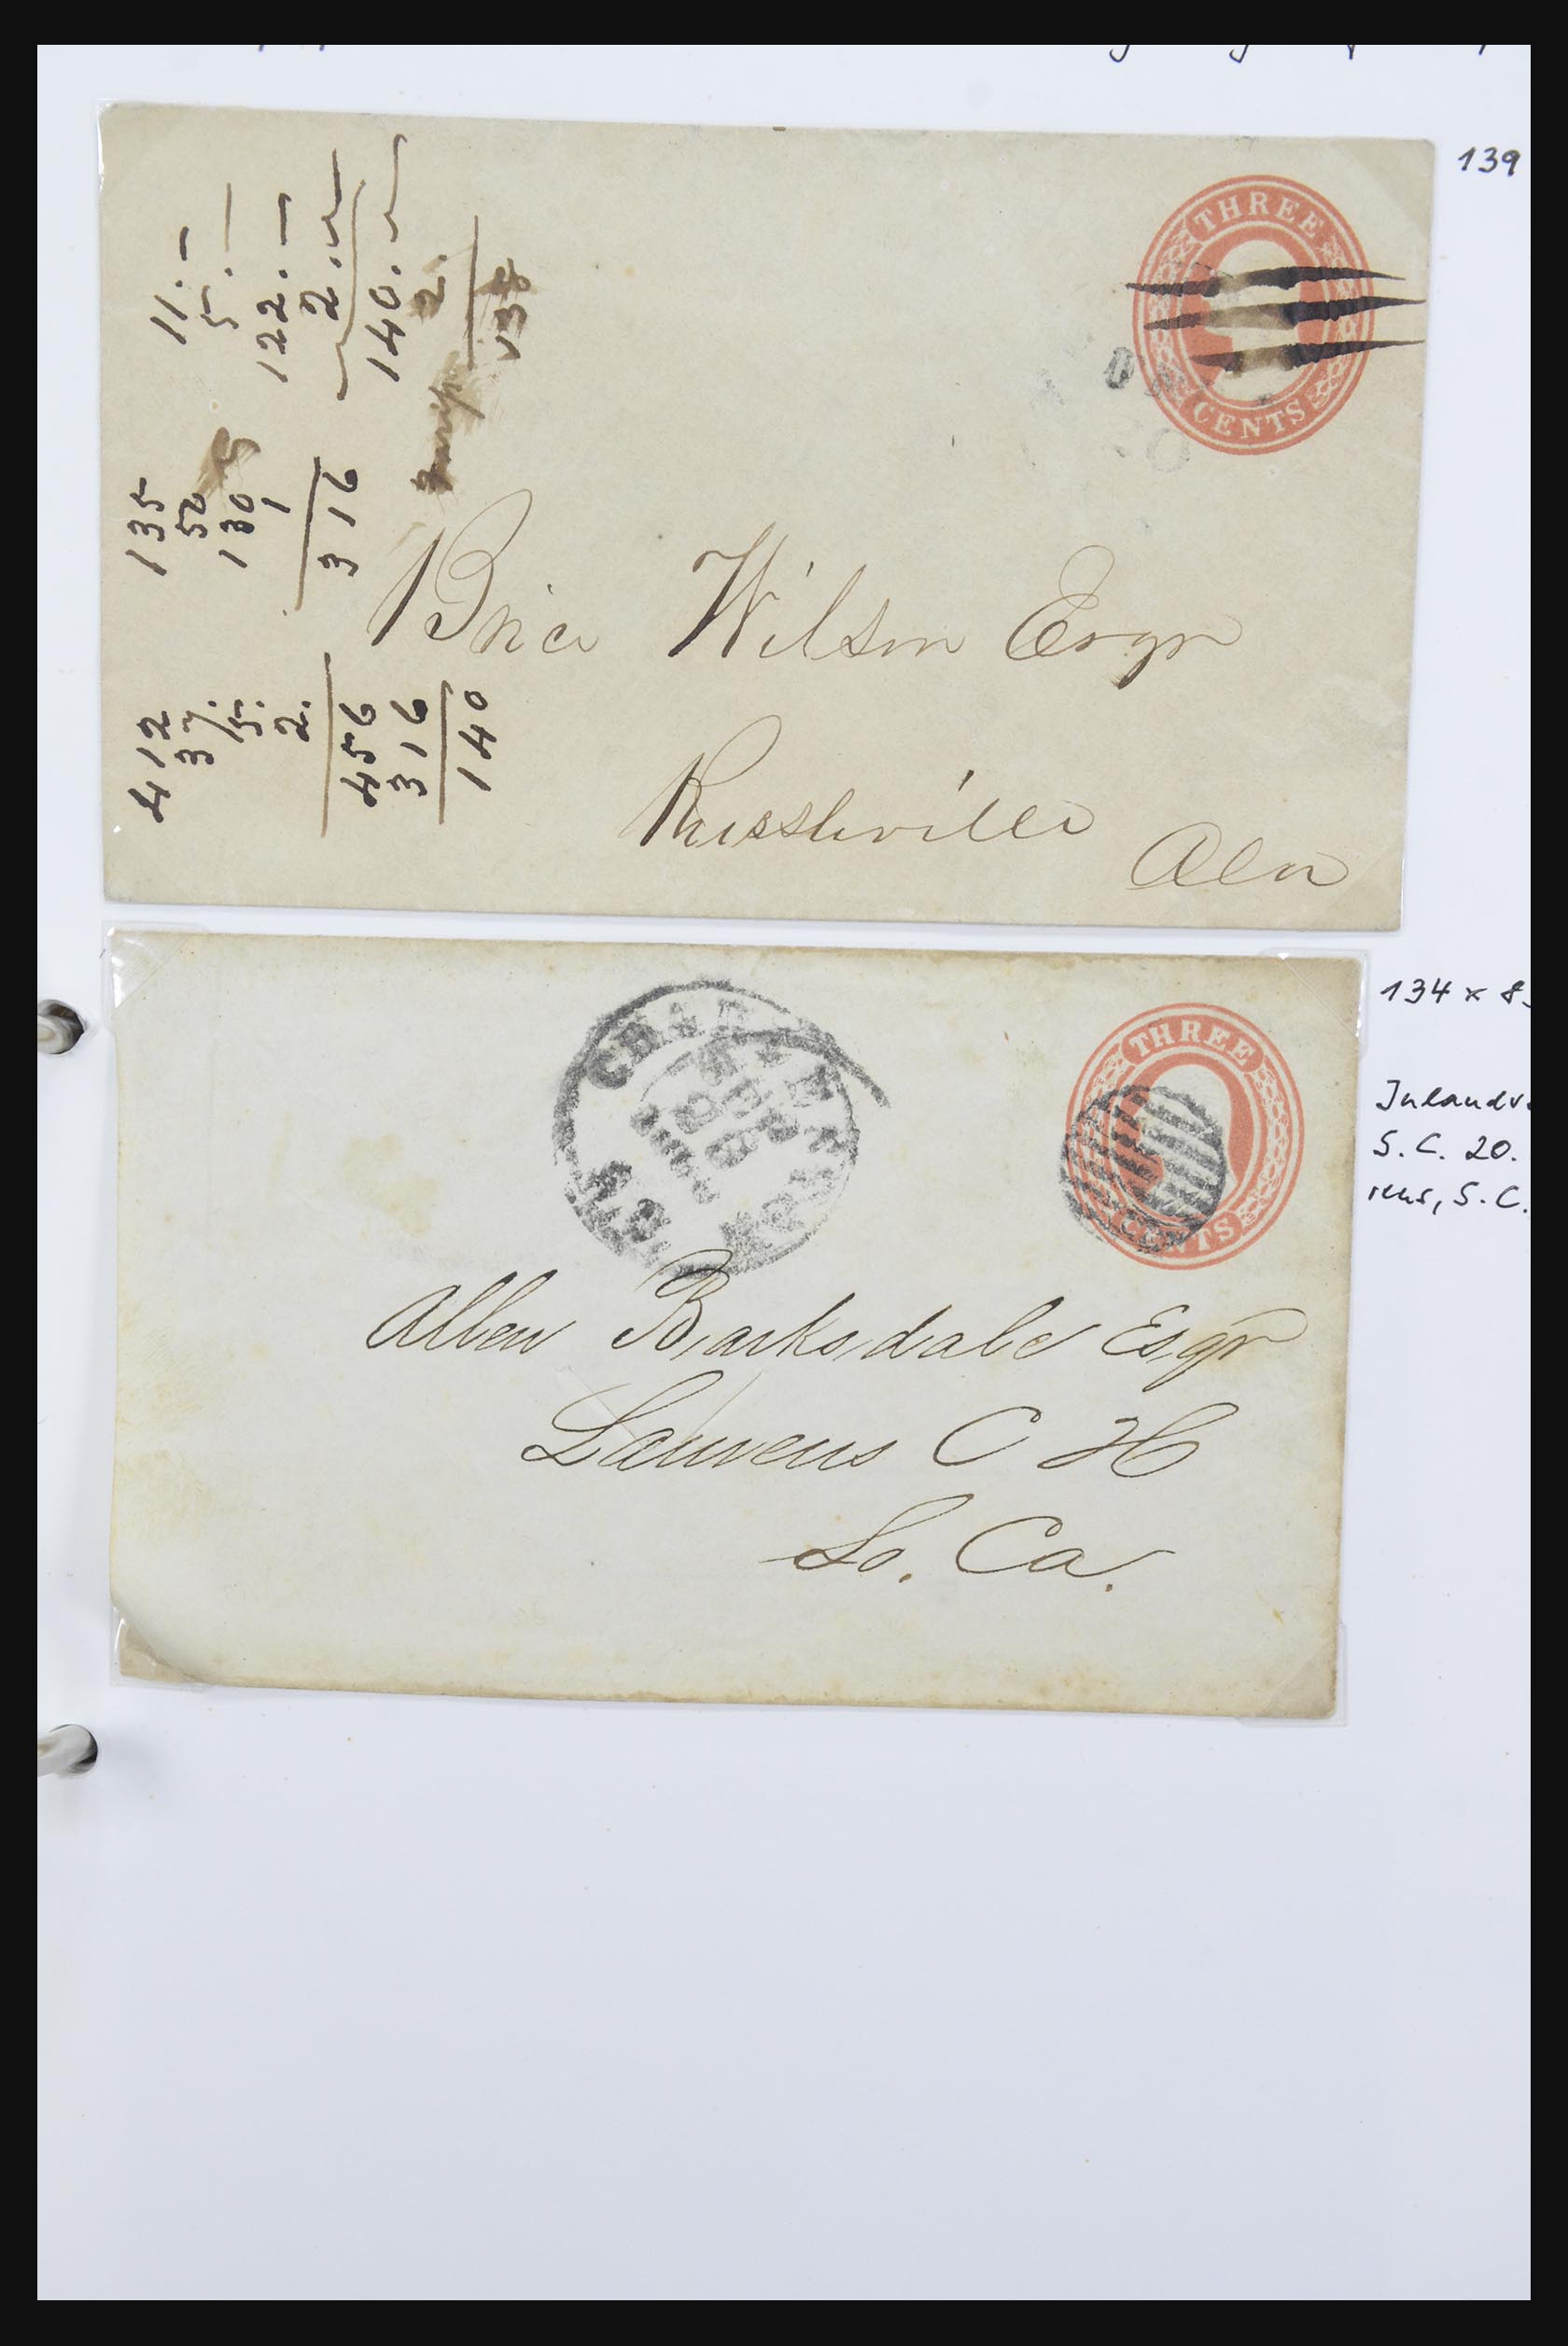 139
THREE
CENTS
11.
5.
122.
2.
140.
2.
138
135
50
130
1
316
412
37.
15.
2.
456
316
140
Brice Wilson Esqr
Russleville
Ala
134 x 8
THREE
CENTS
SEP
Inlandv
S.C. 20.
rens, S.C.
Allen Barksdale Esqr
Laurens C H
So. Ca.